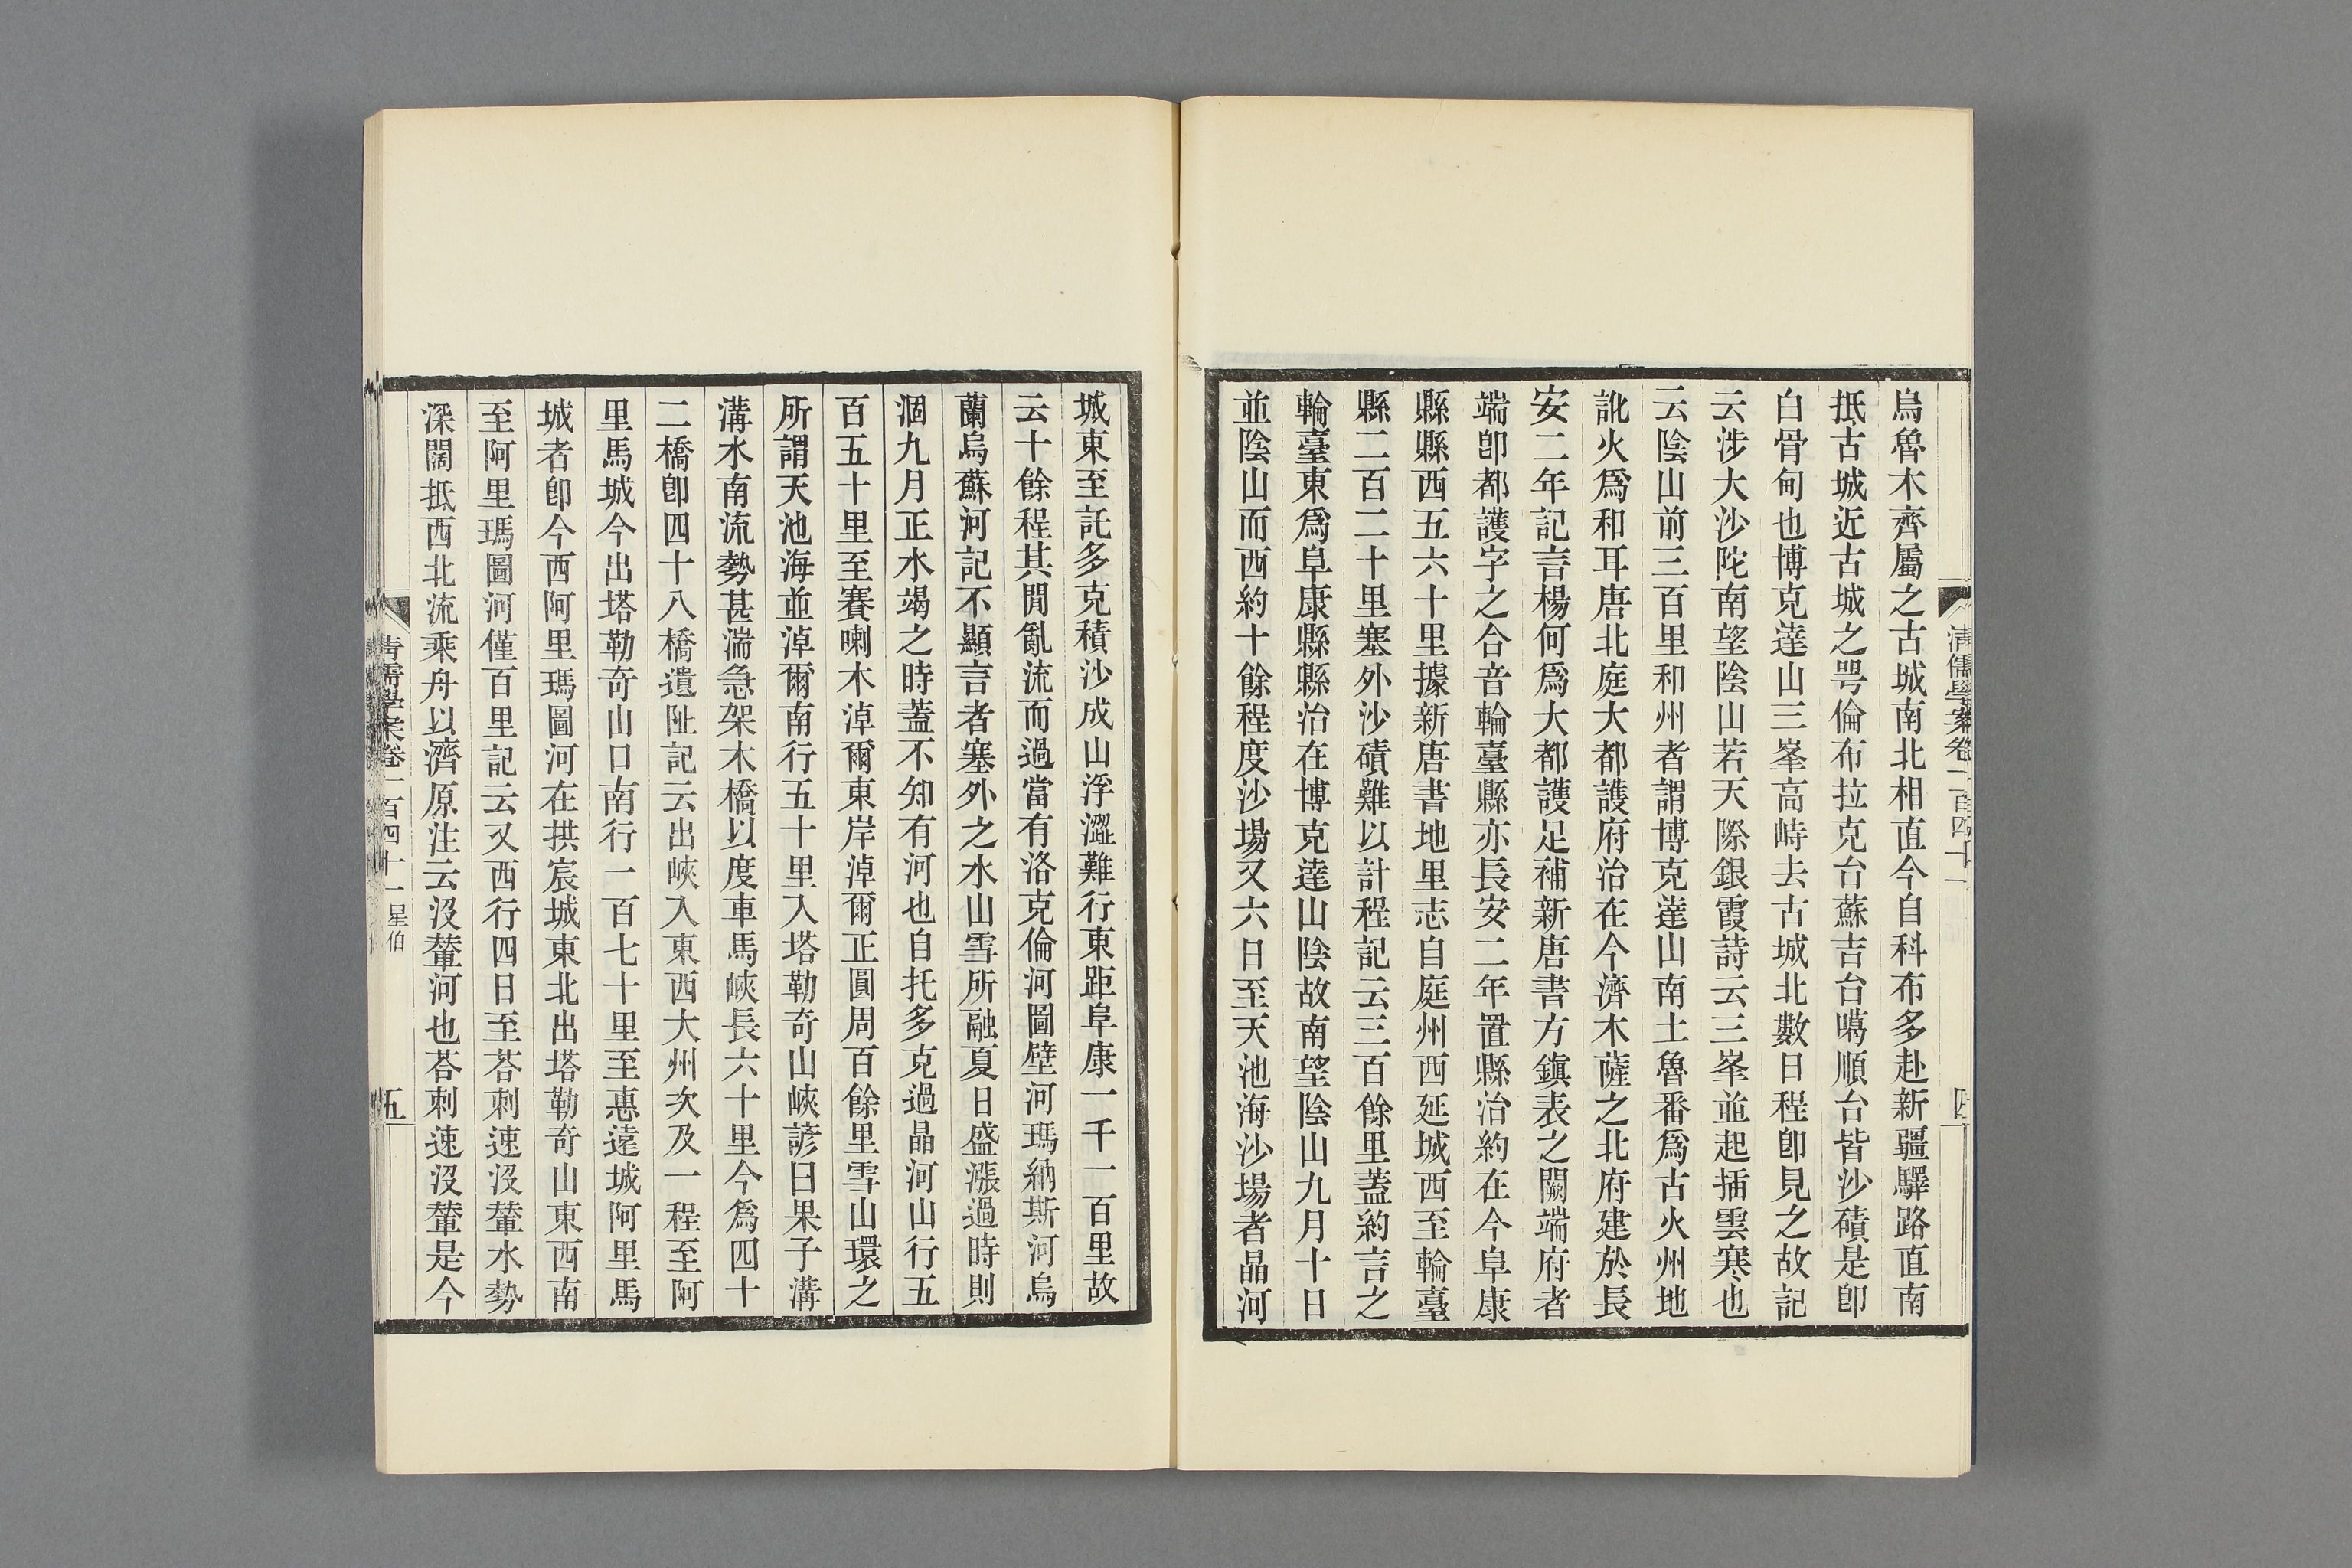 清儒學案卷一百四十一
四
烏魯木齊屬之古城南北相直今自科布多赴新疆驛路直南
抵古城近古城之咢倫布拉克台蘇吉台噶順台皆沙磧是卽
白骨甸也博克達山三峯高峙去古城北數日程卽見之故記
云涉大沙陀南望陰山若天際銀霞詩云三峯並起插雲寒也
云陰山前三百里和州者謂博克達山南土魯番爲古火州地
訛火爲和耳唐北庭大都護府治在今濟木薩之北府建於長
安二年記言楊何爲大都護足補新唐書方鎭表之闕端府者
端卽都護字之合音輪臺縣亦長安二年置縣治約在今阜康
縣縣西五六十里據新唐書地里志自庭州西延城西至輪臺
縣二百二十里塞外沙磧難以計程記云三百餘里蓋約言之
輪臺東爲阜康縣縣治在博克達山陰故南望陰山九月十日
並陰山而西約十餘程度沙場又六日至天池海沙場者晶河
城東至託多克積沙成山浮澀難行東距阜康一千一百里故
云十餘程其閒亂流而過當有洛克倫河圖壁河瑪納斯河烏
蘭烏蘇河記不顯言者塞外之水山雪所融夏日盛漲過時則
涸九月正水竭之時蓋不知有河也自托多克過晶河山行五
百五十里至賽喇木淖爾東岸淖爾正圓周百餘里雪山環之
所謂天池海並淖爾南行五十里入塔勒奇山峽諺曰果子溝
溝水南流勢甚湍急架木橋以度車馬峽長六十里今爲四十
二橋卽四十八橋遺阯記云出峽入東西大州次及一程至阿
里馬城今出塔勒奇山口南行一百七十里至惠遠城阿里馬
城者卽今西阿里瑪圖河在拱宸城東北出塔勒奇山東西南
至阿里瑪圖河僅百里記云又西行四日至荅剌速沒輦水勢
深闊抵西北流乘舟以濟原注云沒輦河也荅剌速沒輦是今
清儒學案卷一百四十一 星伯
五